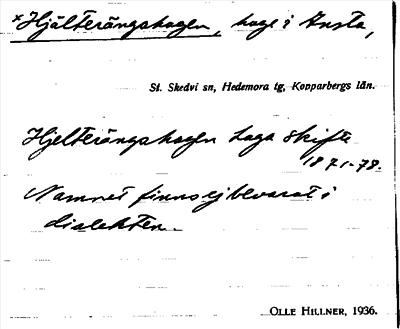 ×Hjälterängshagen, hage i Ansta,
St. Skedvi sn, Hedemora tg, Kopparbergs län.
Hjelterängshagen Laga skifte
1871-78.
Namnet finns ej bevarat i
dialekten.
OLLE HILLNER, 1936.